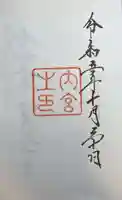 令和五年十月
日
内宮
之印